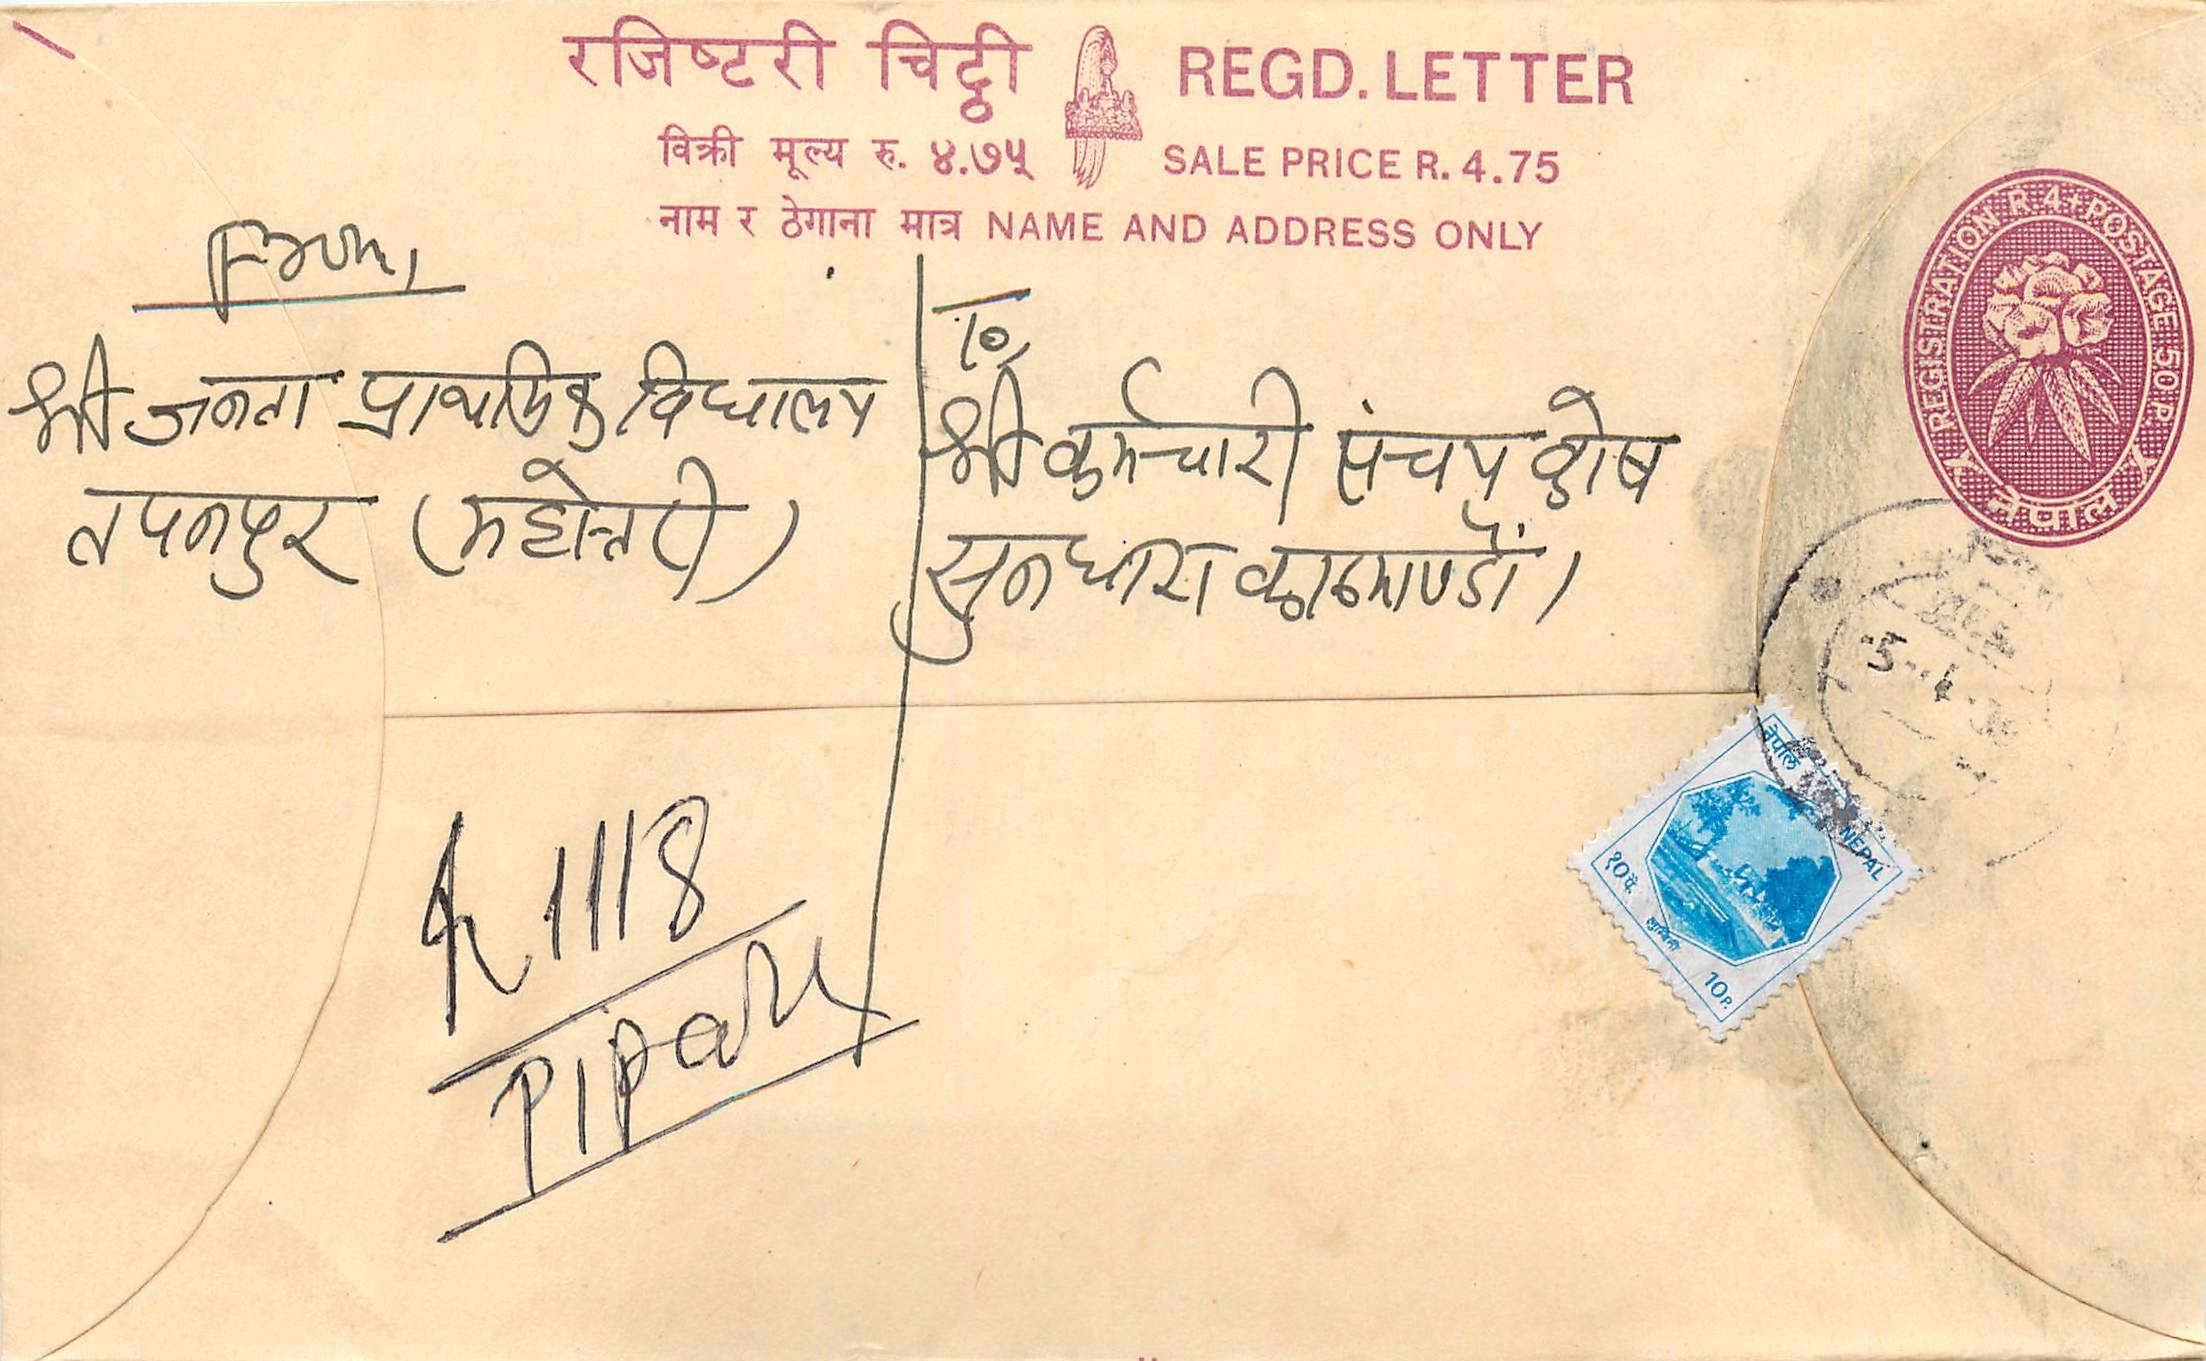 रजिष्टरी चिट्ठी REGD. LETTER
विक्री मूल्य रु. ४.७५ SALE PRICE R. 4.75
नाम र ठेगाना मात्र NAME AND ADDRESS ONLY
REGISTRATION R. 4 + POSTAGE 50 P.
नेपाल
From,
श्री जनता प्राथमिक विद्यालय
तपनपुर (महोत्तरी)
To,
श्री कर्मचारी संचय कोष
सुनधारा काठमाण्डौं।
R 1118
Pipara
5
नेपाल NEPAL
१० पै.
लुम्बिनी
10 P.